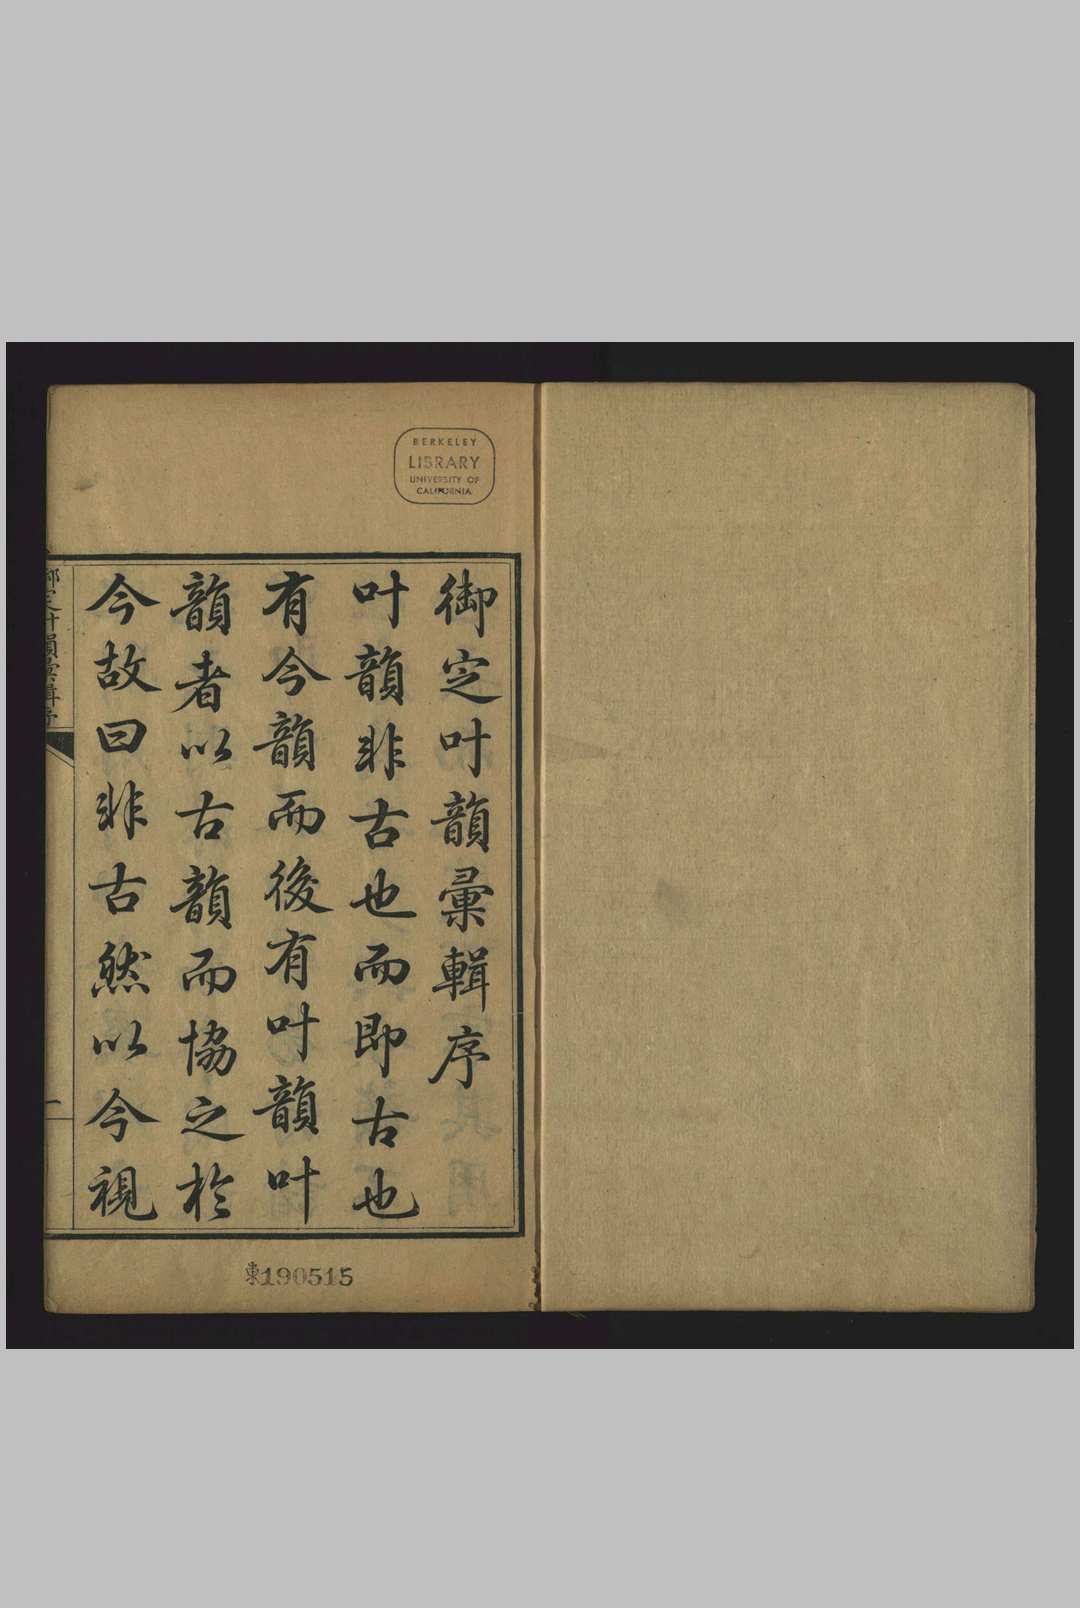 BERKELEY
LIBRARY
UNIVERSITY OF
CALIFORNIA
御定叶韻彙輯序
叶韻非古也而即古也
有今韻而後有叶韻叶
韻者以古韻而協之於
今故曰非古然以今視
御定叶韻彙輯序
一
東190515